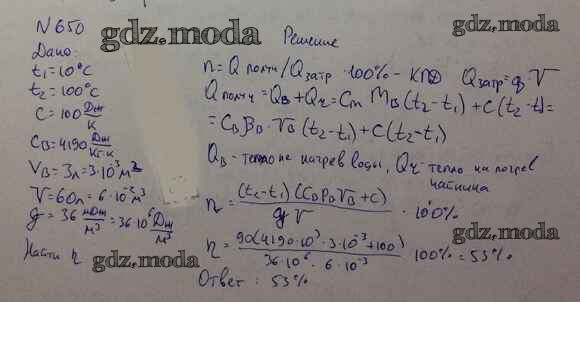 gdz.moda
gdz.moda
N 650
Дано:
t₁=10°C
t₂=100°C
C=100 Дж/К
C_B=4190 Дж/кг·К
V_B=3л=3·10⁻³м³
V=60л=6·10⁻²м³
q=36 мДж/м³=36·10⁶ Дж/м³
Найти η
gdz.moda
Решение
η=Q получ/Q затр ·100% - КПД Q затр=q·V
Q получ=Q_B+Q_ч=C_m M_B(t₂-t₁)+C(t₂-t₁)=
=C_B ρ_B·V_B(t₂-t₁)+C(t₂-t₁)
gdz.moda
Q_B - тепло не нагрев воды, Q_ч - тепло на нагрев
чайника
η=(t₂-t₁)(C_B ρ_B V_B+C)/qV ·100%
gdz.moda
η=90(4190·10³·3·10⁻³+100)/36·10⁶·6·10⁻³ ·100%=53%
gdz.moda
Ответ: 53%